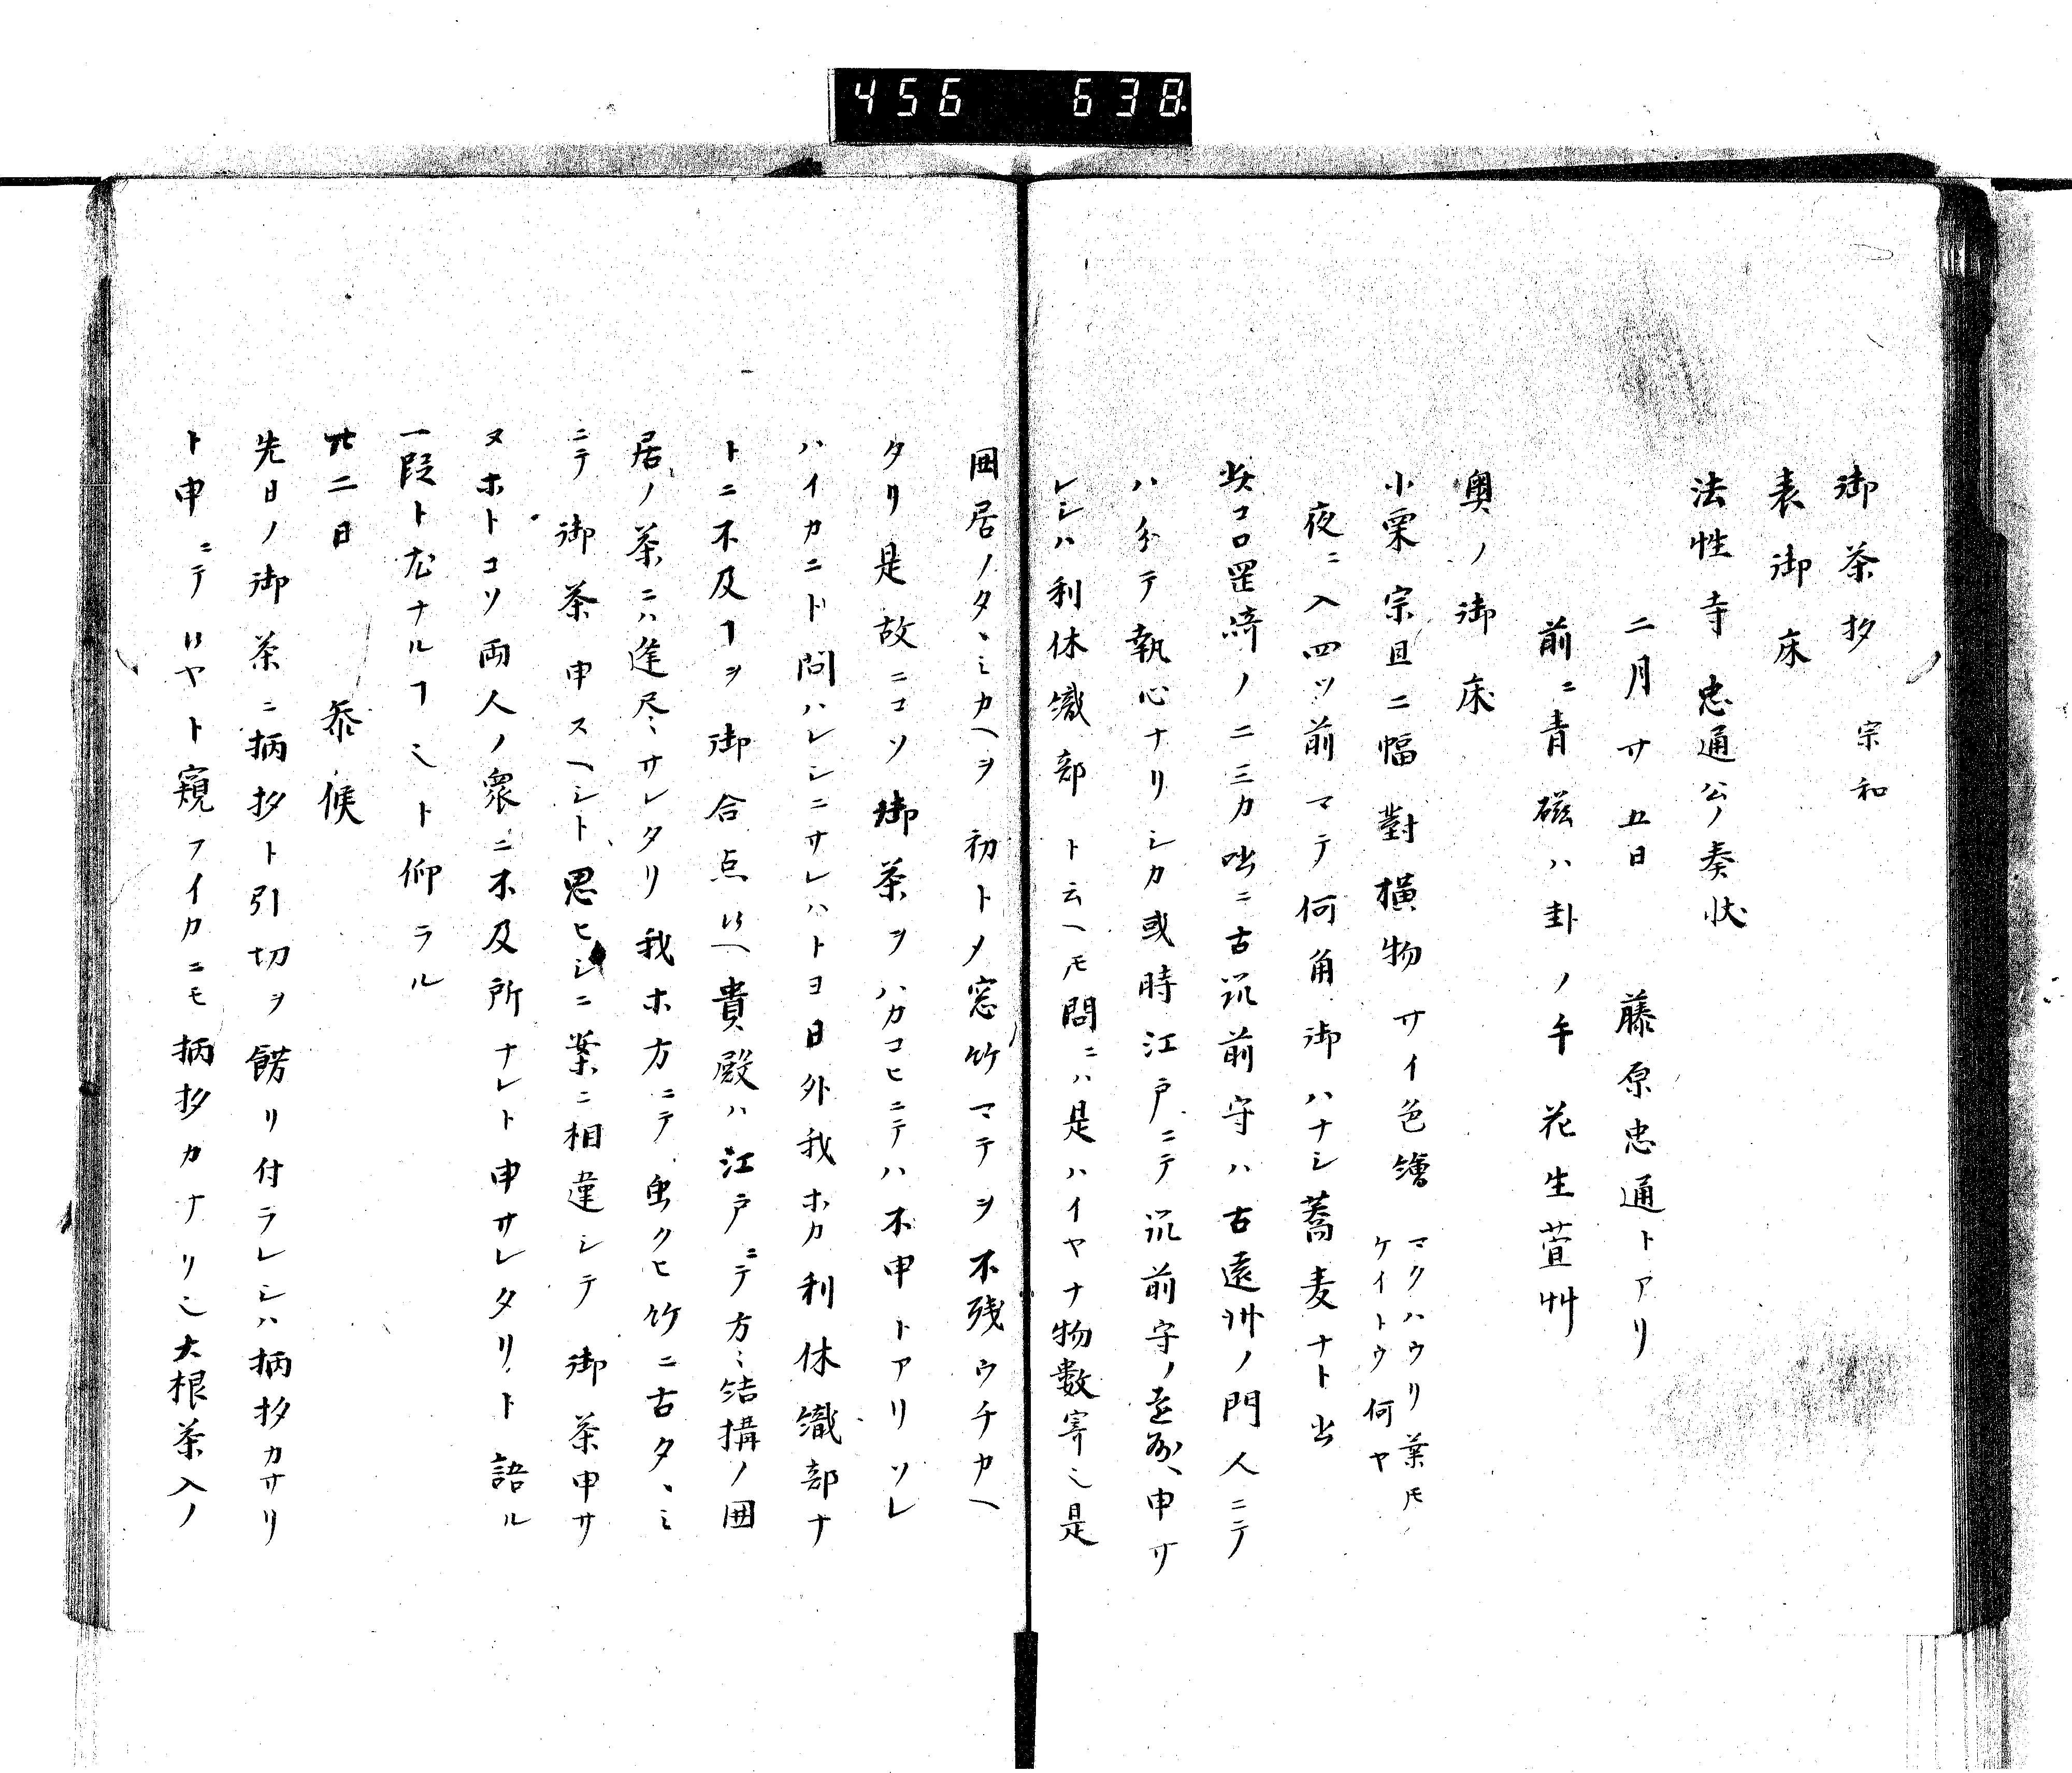 456 638
御茶杓 宗和
表御床
法性寺忠通公ノ奏状
二月廿五日 藤原忠通トアリ
前ニ青磁ハ卦ノ手花生萱艸
奥ノ御床
小栗宗丹二幅對横物サイ色繪 マクハウリ葉モ
ケイトウ何ヤ
夜ニ入四ツ前マテ何角御ハナシ蕎麦ナト出
コロ罡崎ノ二三カ咄ニ古筑前守ハ古遠州ノ門人ニテ
ハ分テ執心ナリシカ或時江戸ニテ筑前守ノ申サ
レシハ利休織部ト云ヘモ問ニハ是ハイヤナ物數寄也是
囲居ノタヽミカヘヲ初トメ窓竹マテヲ不残ウチカヘ
タリ是故ニコソ御茶ヲハカコヒニテハ不申トアリソレ
ハイカニト問ハレシニサレハトヨ日外我ホカ利休織部ナ
トニ不及ヿヲ御合点候ヘ貴殿ハ江戸ニテ方〻結構ノ囲
居ノ茶ニハ逢尽サレタリ我ホ方ニテ虫クヒ竹ニ古タヽミ
ニテ御茶申スヘシト思ヒシニ案ニ相違シテ御茶申サ
ヌホトコソ両人ノ衆ニ不及所ナレト申サレタリト語ル
一段ト尤ナルヿ也ト仰ラル
廿二日 参候
先日ノ御茶ニ柄杓ト引切ヲ餝リ付ラレシハ柄杓カサリ
ト申ニテ候ヤト窺フイカニモ柄杓カナリ也大根茶入ノ